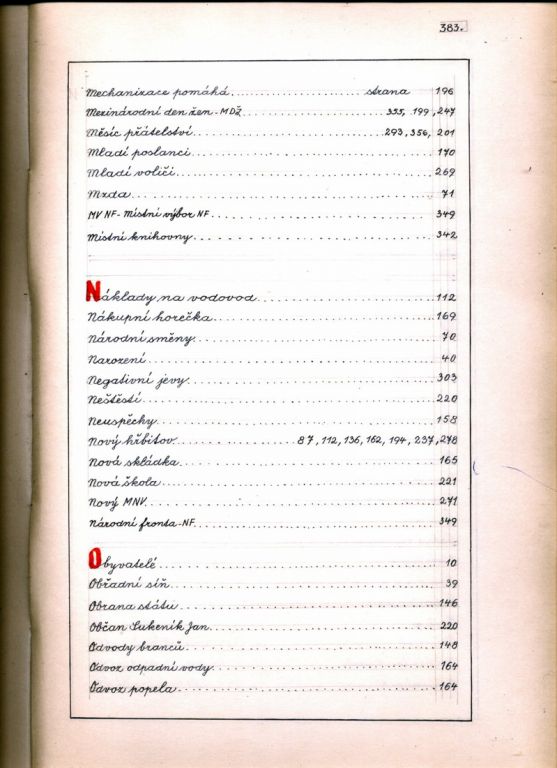 383.
Mechanizace pomáhá strana 196
Mezinárodní den žen - MDŽ 355, 199, 247
Měsíc přátelství 293, 356, 201
Mladí poslanci 170
Mladí voliči 269
Mzda 71
MV NF - Místní výbor NF 349
Místní knihovny 342
Náklady na vodovod 112
Nákupní horečka 169
Národní směny 70
Narození 40
Negativní jevy 303
Neštěstí 220
Neuspěchy 158
Nový hřbitov 87, 112, 136, 162, 194, 237, 278
Nová skládka 165
Nová škola 221
Nový MNV 271
Národní fronta - NF 349
Obyvatelé 10
Obřadní síň 39
Obrana státu 146
Občan Sukeník Jan 220
Odvody branců 148
Odvoz odpadní vody 164
Odvoz popela 164